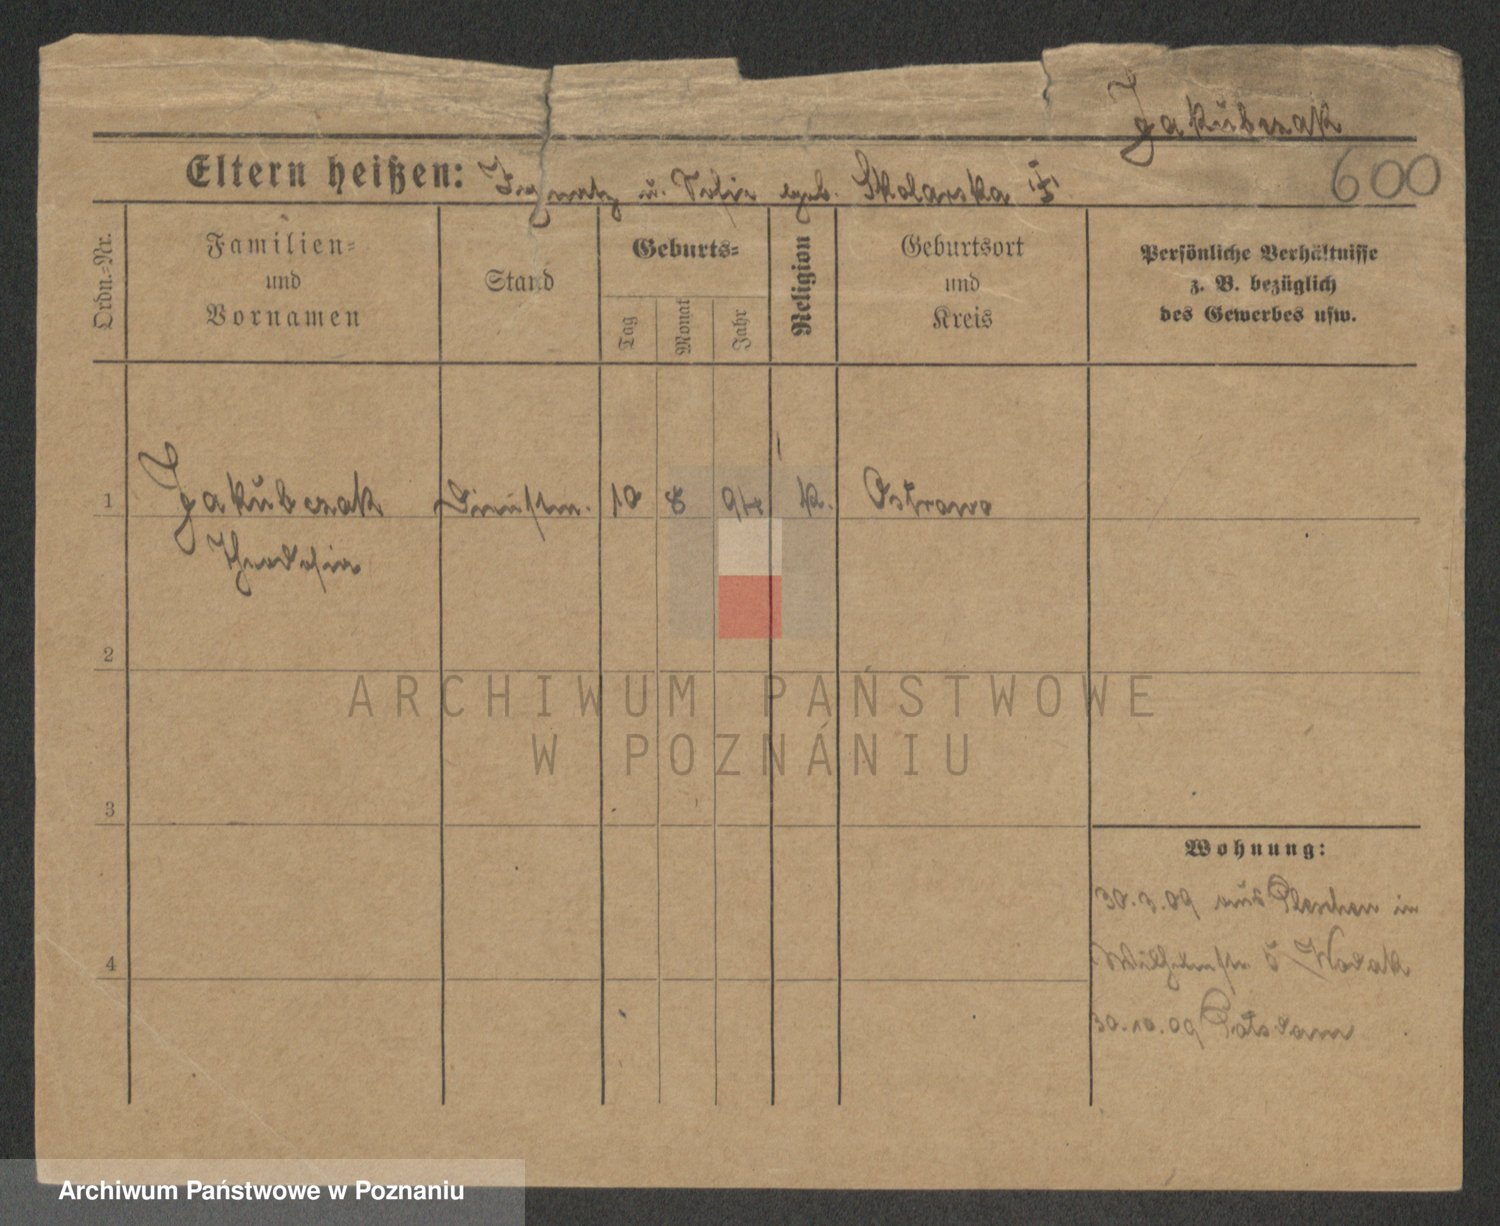 Jakubczak
600
Eltern heißen: Ignatz u. Julie geb. Skolarska
Ordn.-Nr.
Familien-
und
Vornamen
Stand
Geburts-
Tag
Monat
Jahr
Religion
Geburtsort
und
Kreis
Persönliche Verhältnisse
z. B. bezüglich
des Gewerbes usw.
1 Jakubczak 10 8 94 k. Ostrowo
Theodosia
2
ARCHIWUM PAŃSTWOWE
W POZNANIU
3
Wohnung:
30.3.09 aus Pleschen in
4
Wilhelmstr. 5 Wodak
30.10.09 Potsdam
Archiwum Państwowe w Poznaniu